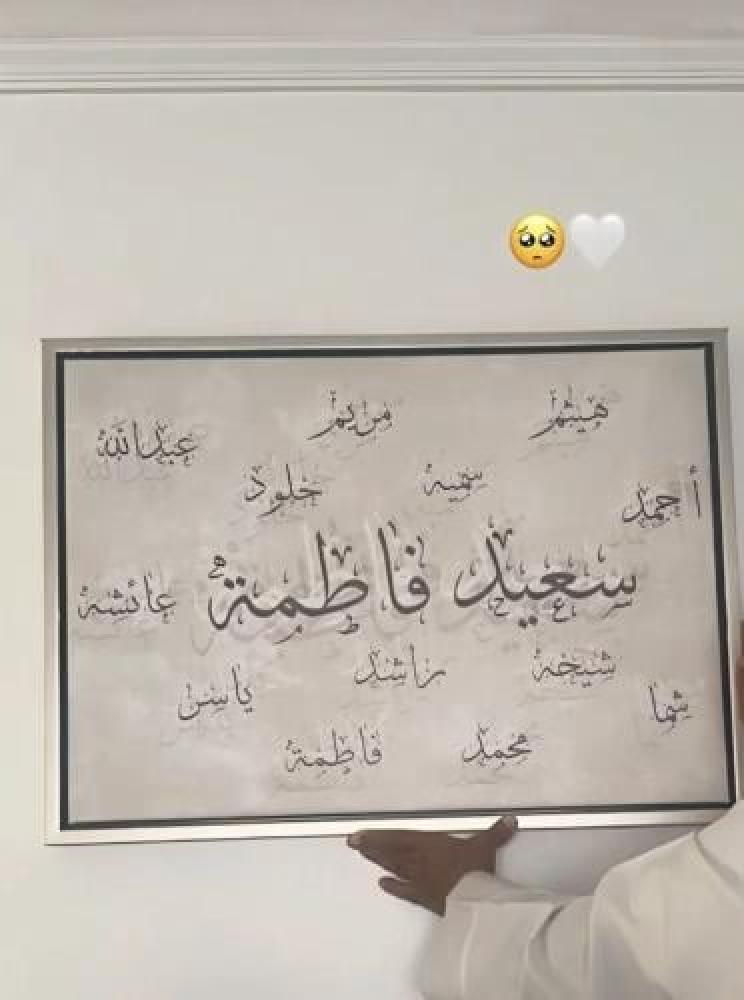 هيثم
مريم
عبدالله
سمية
خلود
أحمد
سعيد فاطمة
عائشة
شيخة
راشد
ياسر
شما
محمد
فاطمة